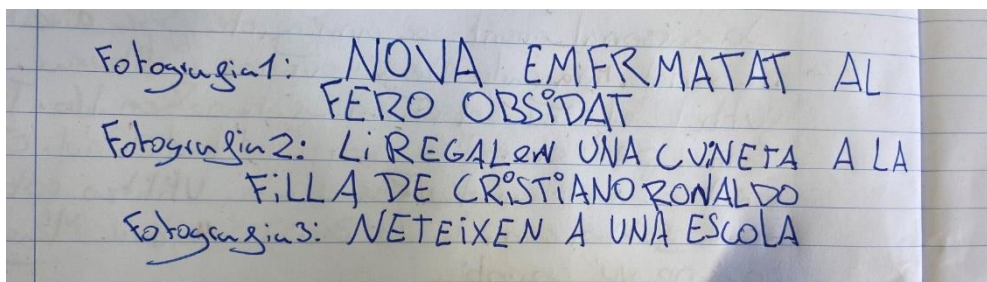 Fotografia1: NOVA EMFRMATAT AL
FERO OBSIDAT
Fotografia2: Li REGALeN UNA CUNETA A LA
FiLLA DE CRiSTiANO RONALDO
Fotografia3: NETEiXEN A UNA ESCOLA